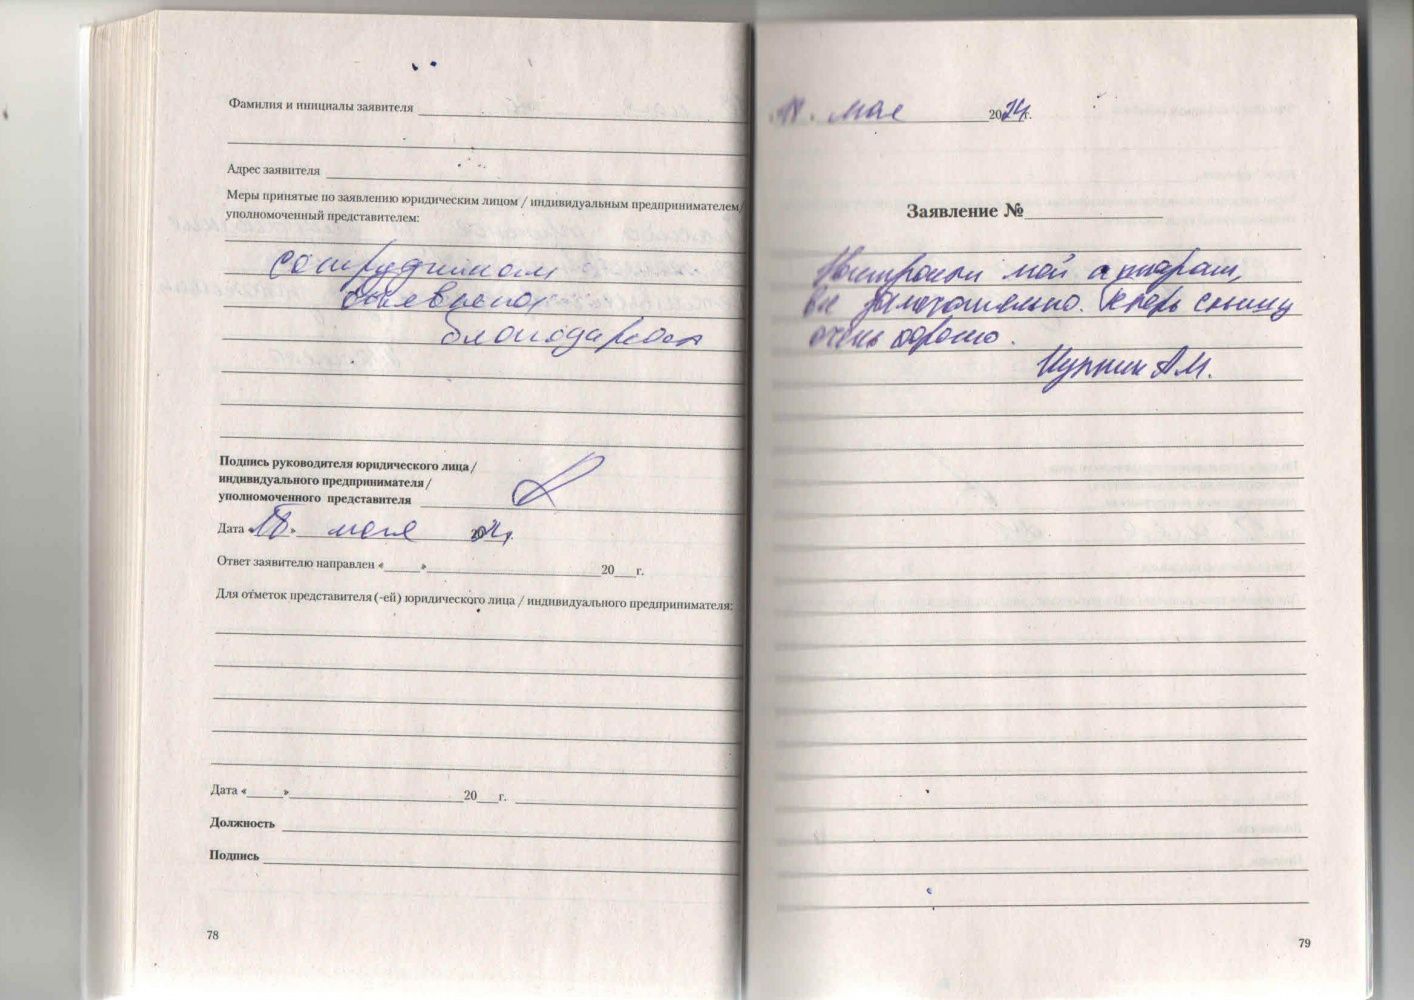 Фамилия и инициалы заявителя
Адрес заявителя
Меры принятые по заявлению юридическим лицом / индивидуальным предпринимателем/
уполномоченный представителем:
сотрудникам
объявлена
благодарность
Подпись руководителя юридического лица /
индивидуального предпринимателя /
уполномоченного представителя
Дата «18» мая 2024г.
Ответ заявителю направлен «____»____20__г.
Для отметок представителя (-ей) юридического лица / индивидуального предпринимателя:
Дата «____»____20__г.
Должность
Подпись
78
18. мая 2024г.
Заявление №
Настроили мой аппарат,
все замечательно. Теперь слышу
очень хорошо.
А.М.
79